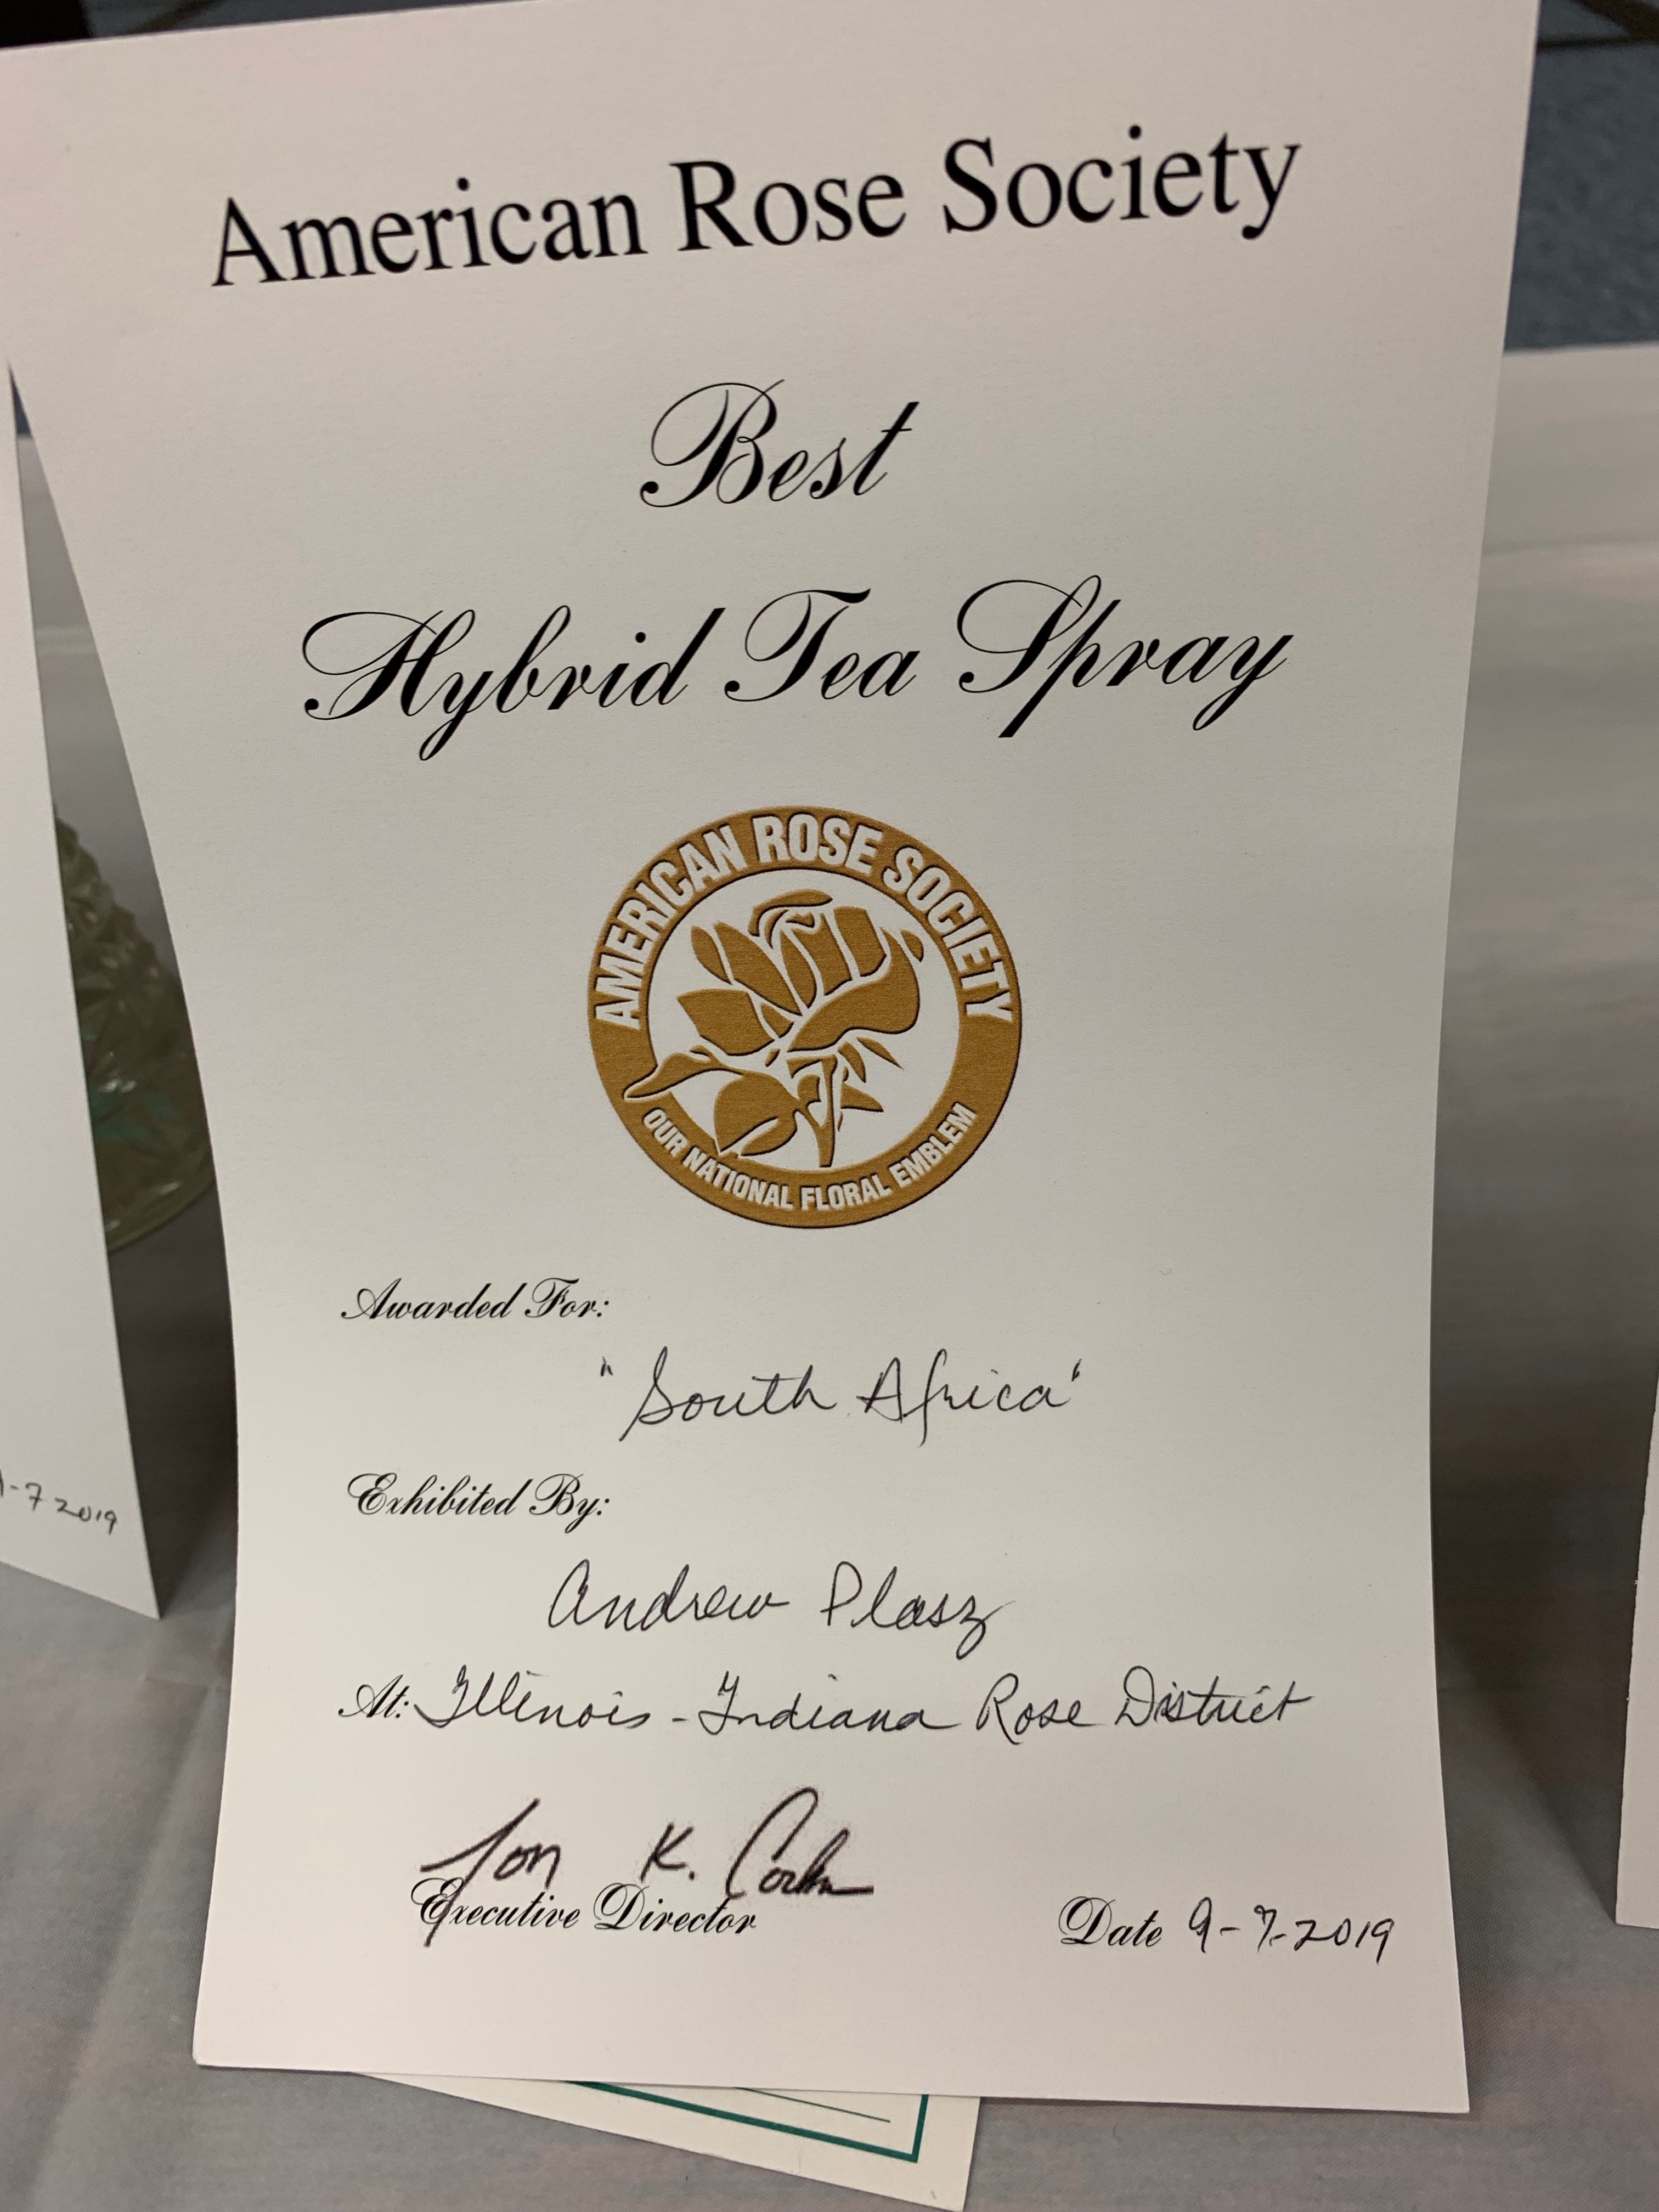 American Rose Society
Best
Hybrid Tea Spray
AMERICAN ROSE SOCIETY
OUR NATIONAL FLORAL EMBLEM
Awarded For:
"South Africa"
Exhibited By:
Andrew Plasz
At: Illinois - Indiana Rose District
Jon K. Corkern
Executive Director
Date 9-7-2019
-7 2019